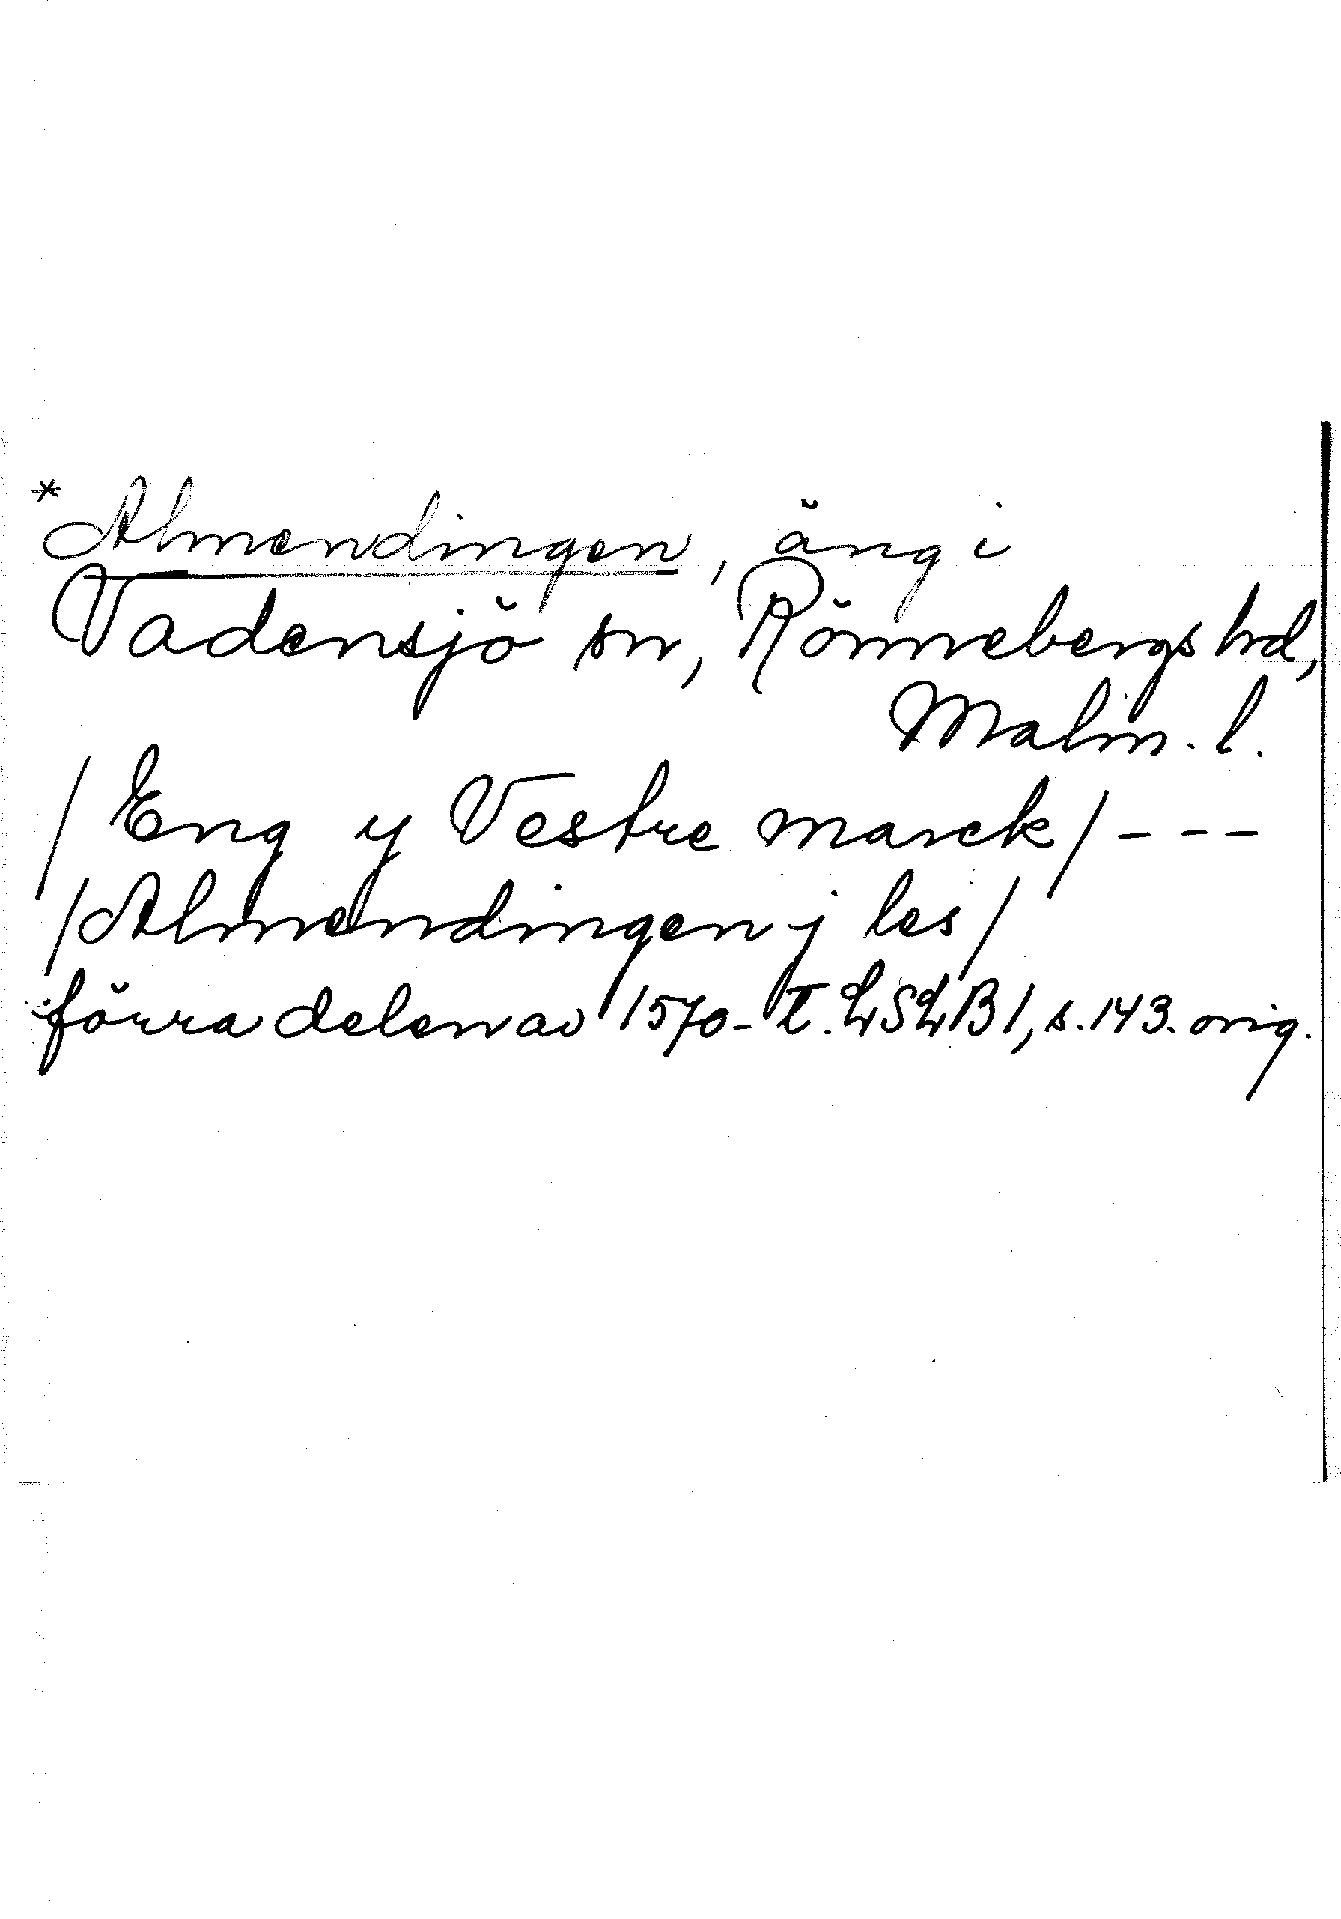 *Almendingen, äng i
Vadensjö sn, Rönnebergs hd,
Malm. l.
/Eng y Vestre marck/ - - -
/Almendingen j les/
förra delen av 1570-t. LSLB 1, s. 143. orig.